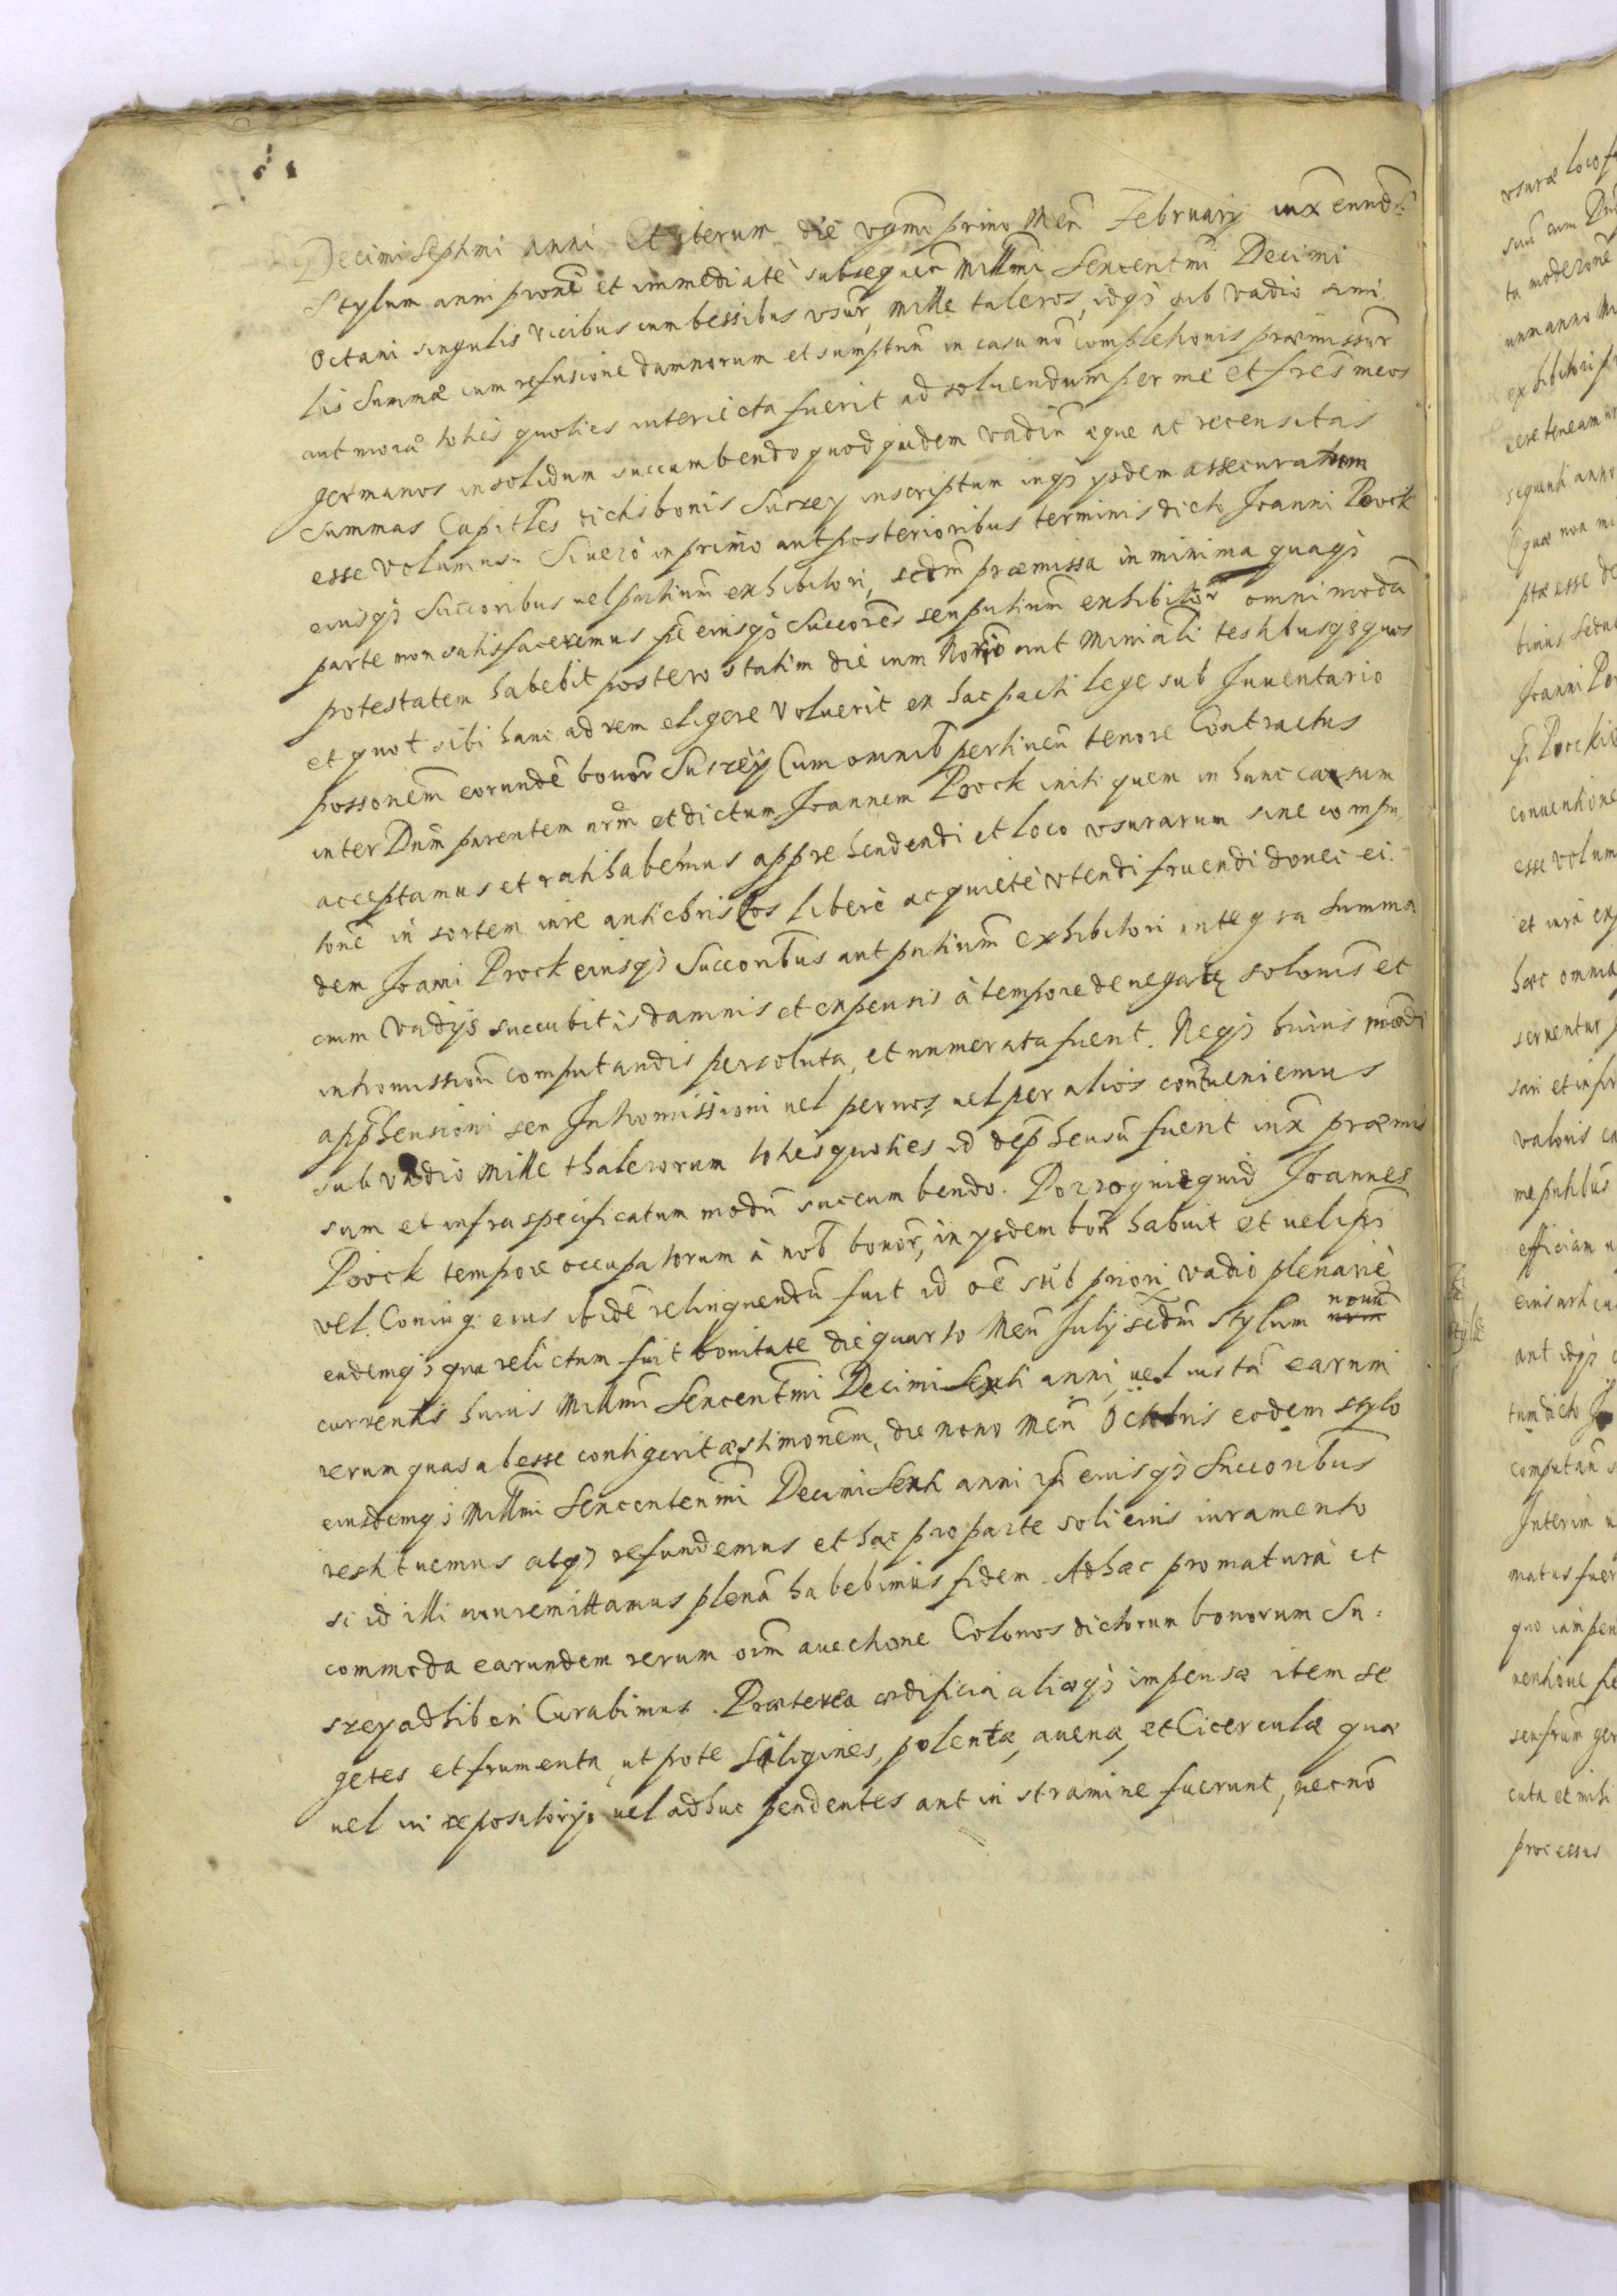 Decimi septimi anni Et iterum die vgmo primo Men Februarij iux eundē
Stylum anni proxē et immediatè subsequen Millmi Sexcentmi Decimi
Octavi singulis vicibus cum bessibus usur, mille taleros, idqȝ sub vadio simi
lis Summæ cum refusione damnorum et sumptuū in casu nō completionis præmissor
aut moræ toties quoties interiecta fuerit ad soluendum per me et frēs meos
germanos insolidum succumbendo quod quidem vadiū æque ac recensitas
Summas Capitles dictis bonis Surzey inscriptum inqȝ ysdem assecuratum
esse volumus. Si verò in primo aut posterioribus terminis dicto Joanni Poock
eiusqȝ Succoribus vel pntium exhibitori, scdm præmissa in minima quaqȝ
parte non satisfaceremus pē eiusqȝ Succorēs seu pntium exhibitor omnimodā
potestatem habebit postero statim die cum Norio aut Miniāli testibusqȝ quos
et quot sibi hanc ad rem eligere voluerit ex hac pacti lege sub Inventario
possonem eorundē bonor Surzey Cum omnib pertinen tenore Contractus
inter Dnm parentem nrm et dictum Joannem Poock initi quem in hunc casum
acceptamus et ratihabemus apprehendendi et loco usurarum sine compu
tonē in sortem iure antichriseos liberè ac quietè utendi fruendi donec ei.
dem Joani Poock eiusqȝ Succoribus aut pntium exhibitori integra summa
cum vadijs succubitis damnis et expensis à tempore denegatę solonis et
intromission computandis persoluta, et numerata fuerit. Neqȝ huius modi
apphensioni seu Intromissioni vel per nos vel per alios contraueniemus
sub vadio mille thalerorum toties quoties id dephensū fuerit iux præmis
sum et infra specificatum modū succumbendo. Porro quicquid Joannes
Poock tempore occupatorum à nob bonor, in ysdem bon habuit et vel ipsi
vel Coniugi eius ibidē relinquendū fuit id oē sub priori vadio plenariè
eademqȝ qua relictum fuit bonitate die quarto Men Julij scdm stylum nouū
currentis huius Millmi Sexcentmi Decimi Sexti anni, vel iustā earum
rerum quas abesse contigerit æstimonem, die nono Men Octobris eodem stylo
eiusdemqȝ Millmi Sexcentenmi Decimi Sexti anni ipsi eiusqȝ Succoribus
restituemus atqȝ refundemus et hac pro parte soli eius iuramento
si id illi non remittamus plenā habebimus fidem. Ad hæc pro maturà et
commoda earundem rerum oim auectione Colonos dictorum bonorum Su:
szey adhiberi Curabimus. Præterea ædificia aliæqȝ impensæ item se
getes et frumenta, ut pote Siligines, polentæ, avenæ, et Cicerculæ quæ
vel in repositorijs vel adhuc pendentes aut in stramine fuerunt, necnō